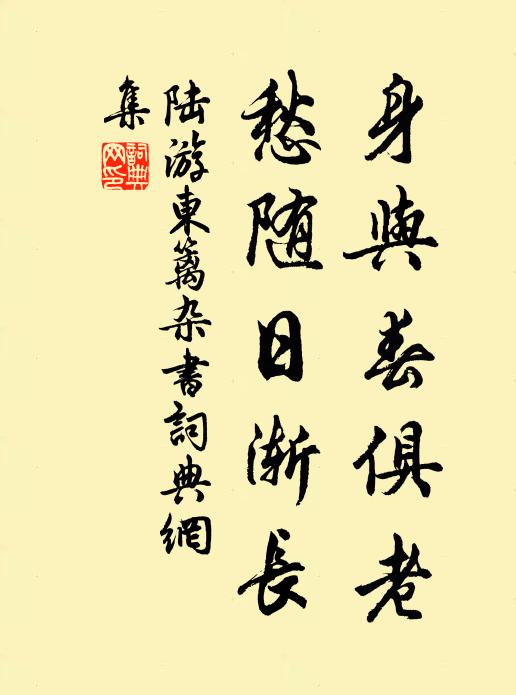 身與春俱老
愁随日漸長
陆游東篱杂書詞典網
集
詞典網印